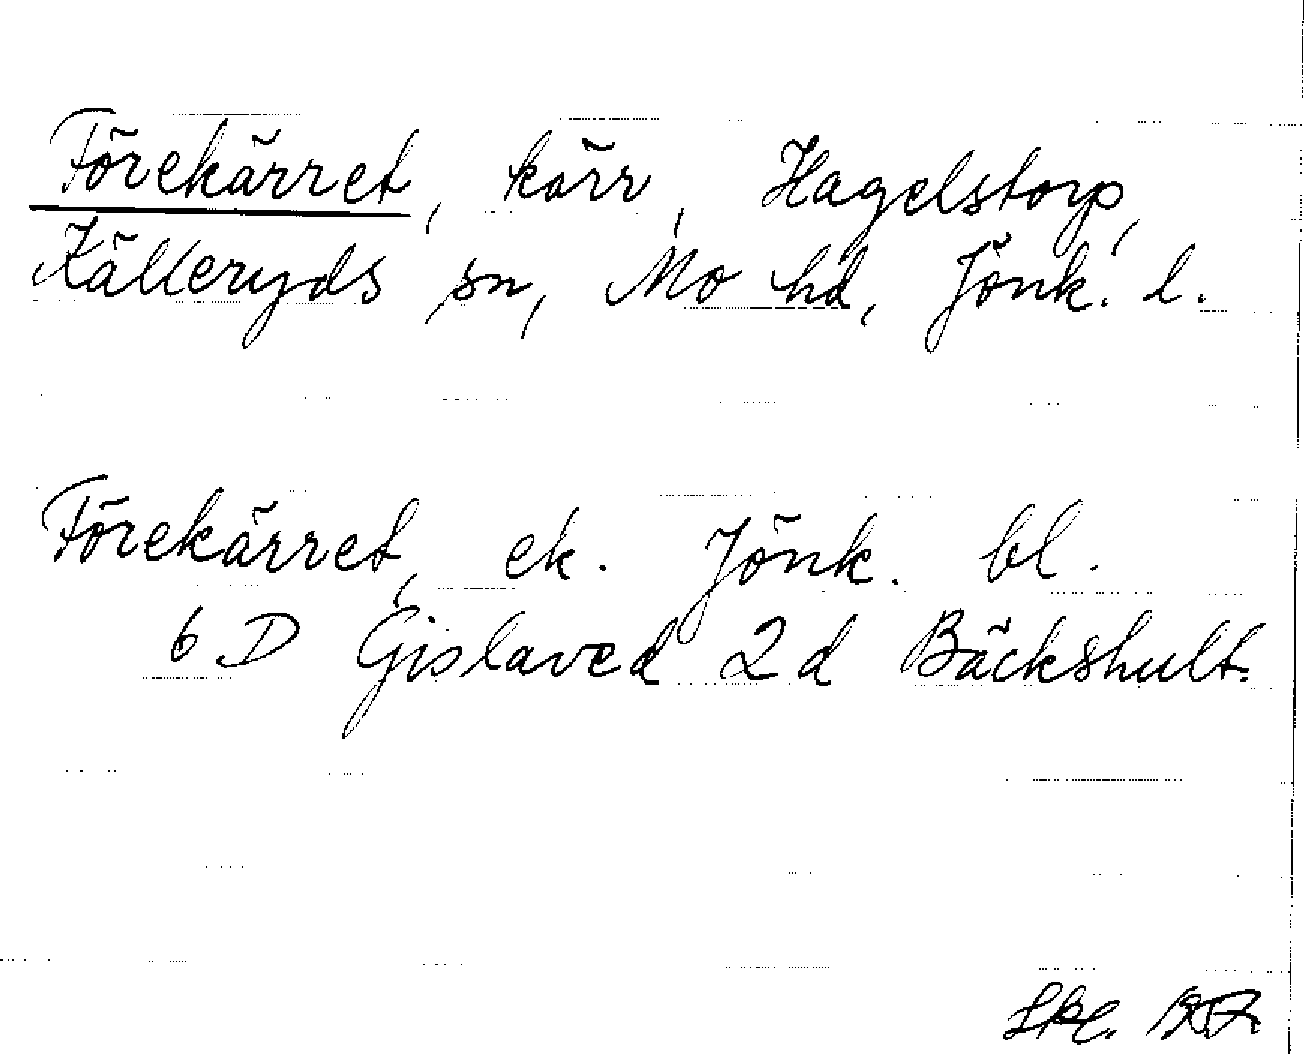 Förekärret, kärr, Hagelstorp,
Källeryds sn, Mo hd, Jönk. l.
Förekärret, ek. Jönk. bl.
6 D Gislaved 2 d Bäckshult.